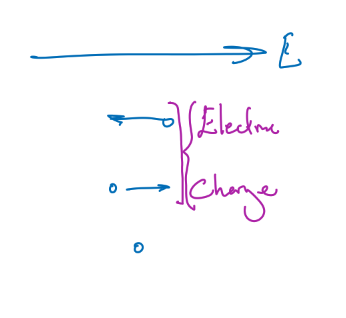 E
Electric
Charge